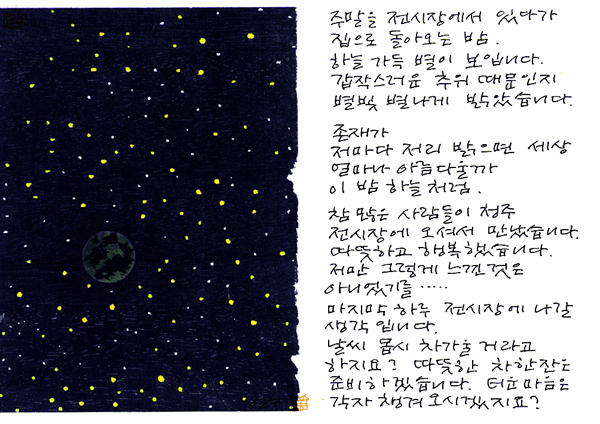 주말을 전시장에서 있다가
집으로 돌아오는 밤.
하늘 가득 별이 보입니다.
갑작스러운 추위 때문인지
별빛 별나게 밝았습니다.
존재가
저마다 저리 밝으면 세상
얼마나 아름다울까
이 밤 하늘처럼.
참 많은 사람들이 청주
전시장에 오셔서 만났습니다.
따뜻하고 행복했습니다.
저만 그렇게 느낀것은
아니었기를 ·····
마지막 하루 전시장에 나갈
생각입니다.
날씨 몹시 차가울거라고
하지요? 따뜻한 차한잔은
준비하겠습니다. 더운마음은
각자 챙겨오시겠지요?